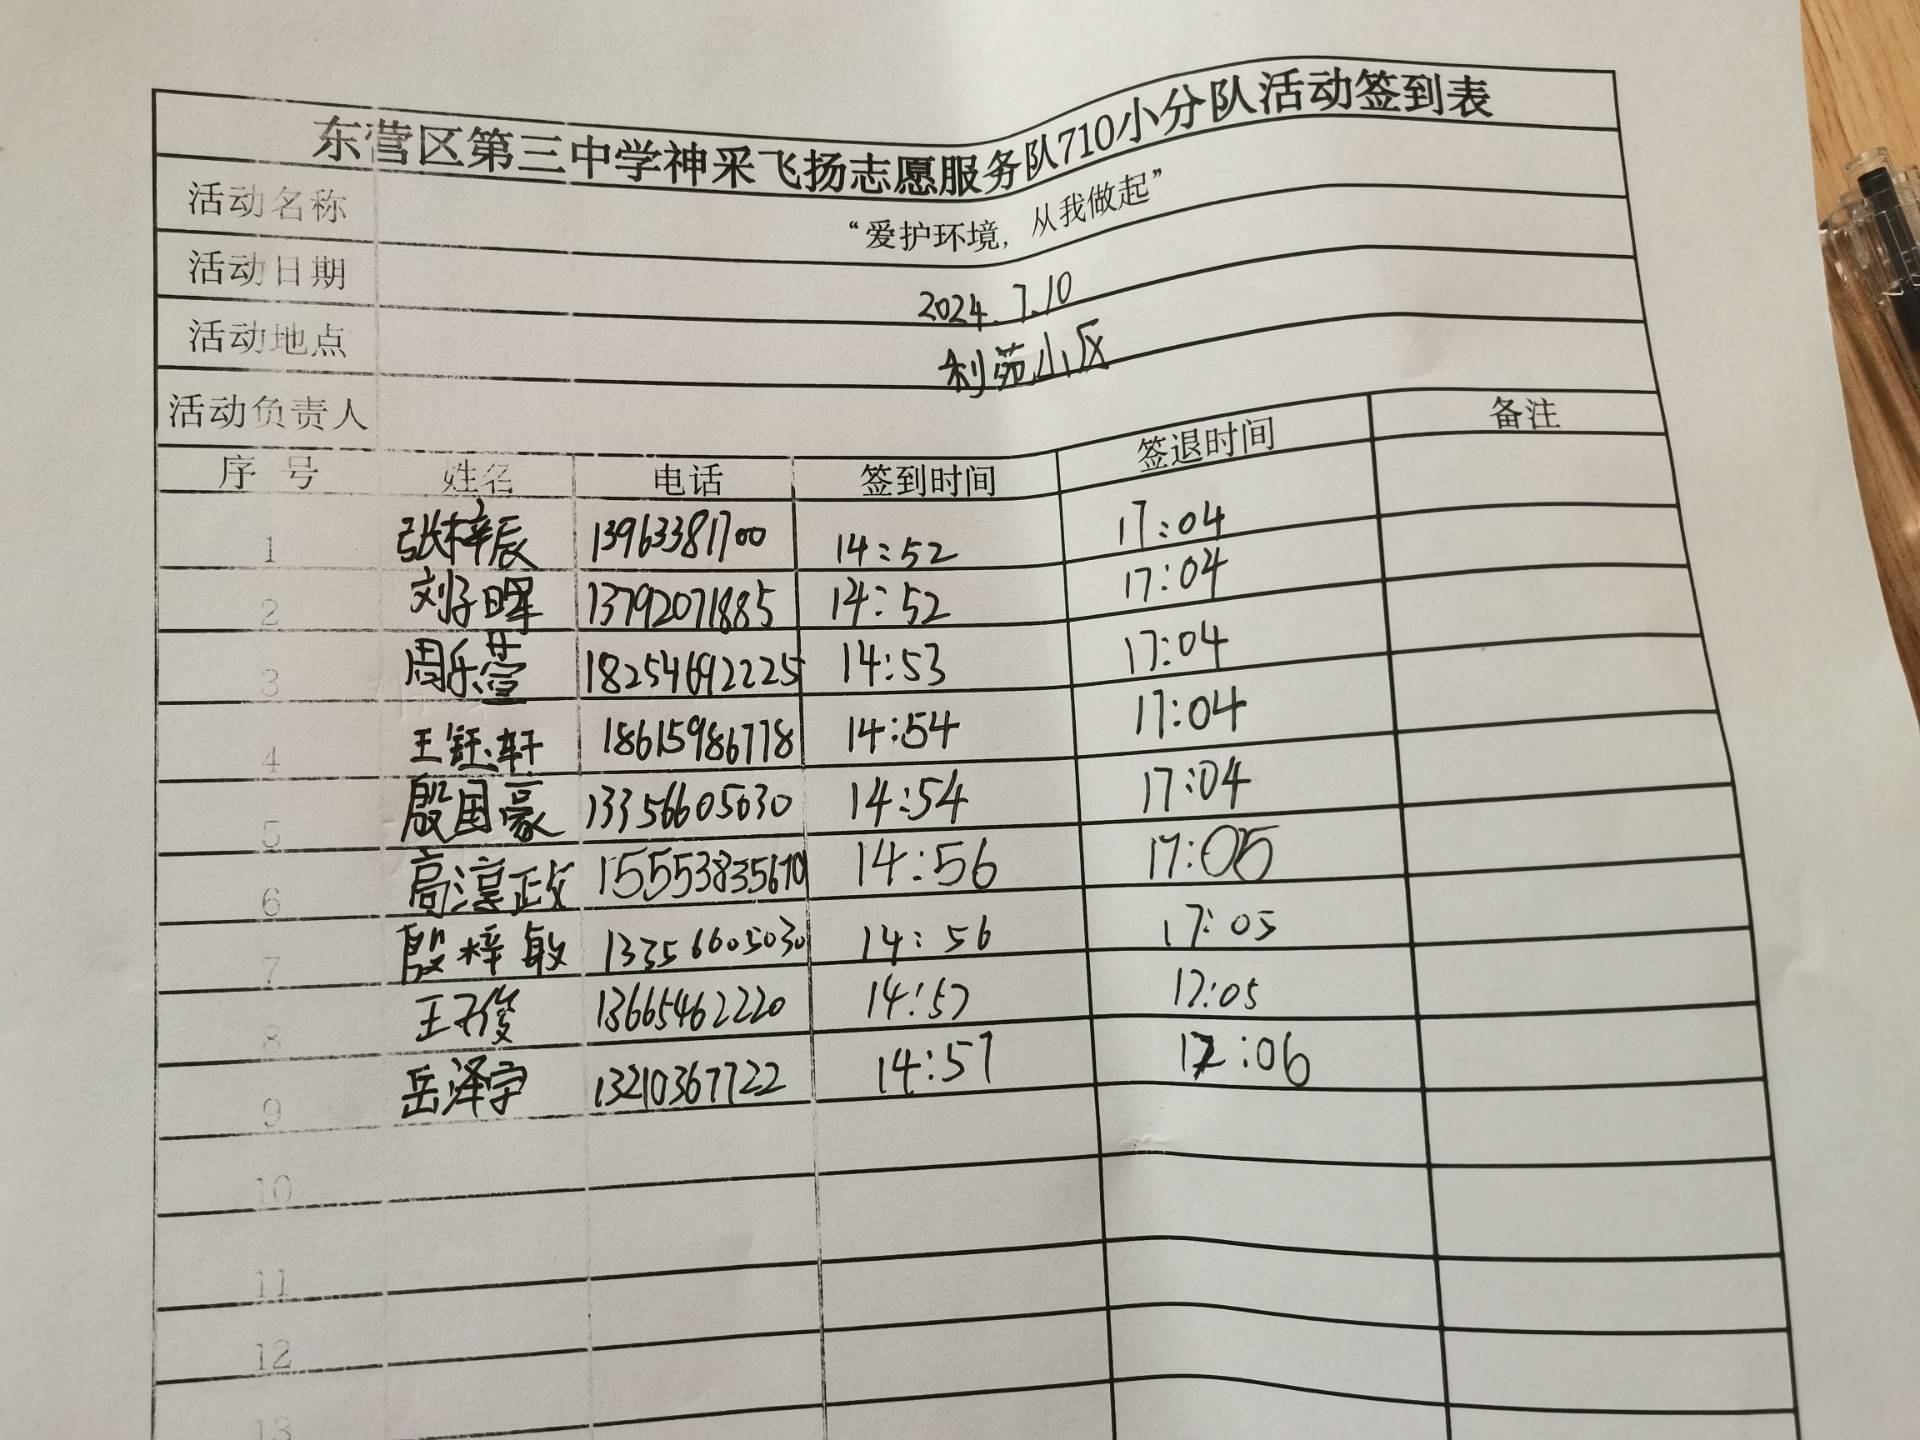 东营区第三中学神采飞扬志愿服务队710小分队活动签到表
活动名称 “爱护环境，从我做起”
活动日期 2024.7.10
活动地点 利苑小区
活动负责人
序 号 姓名 电话 签到时间 签退时间 备注
1 张梓辰 13963381700 14:52 17:04
2 刘子晖 13792071885 14:52 17:04
3 周乐萱 18254692225 14:53 17:04
4 王钰轩 18615986778 14:54 17:04
5 殷国豪 13356605030 14:54 17:04
6 高淳政 15553835670 14:56 17:05
7 殷梓敢 13356605030 14:56 17:05
8 王子俊 13665462220 14:57 17:05
9 岳泽宇 13210367722 14:57 17:06
10
11
12
13